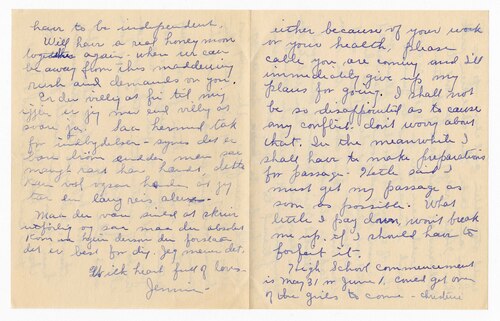 have to be independent.
Will have a real honeymoon
together again when we can
be away from this maddening
rush and demands on you.
Er du villig at fri til mig
igjen er jeg mer end villig at
svare ja. Saa hermed tak
for indbydelsen - synes det er
bare men saa
rart har hendt, dette
kan vel ogsaa hende at jeg
tar en lang reis alene
Maa du være snild at skrive
og sør maa du absolut
kom un hjem dersom du forstaar
det er best for dig. Jeg mener det.
With heart full of love -
Jennie -
either because of your work
or your health, please
cable you are coming and I'll
immediately give up my
plans for going. I shall not
be so disappointed as to cause
any conflict, don't worry about
that. In the meanwhile I
shall have to make preparations
for passage - Hetle said I
must get my passage as
soon as possible. What
little I pay down, won't break
me up, if I should have to
forfeit it.
High School commencement
is May 31 or June 1. Could get one
of the girls to come -